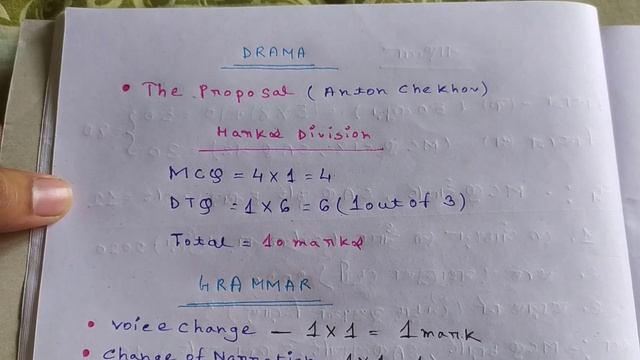 DRAMA
• The Proposal (Anton Chekhov)
Marks Division
MCQ = 4 x 1 = 4
DTQ = 1 x 6 = 6 (1 out of 3)
Total = 10 marks
GRAMMAR
• Voice change — 1 x 1 = 1 mark
• Change of Narration